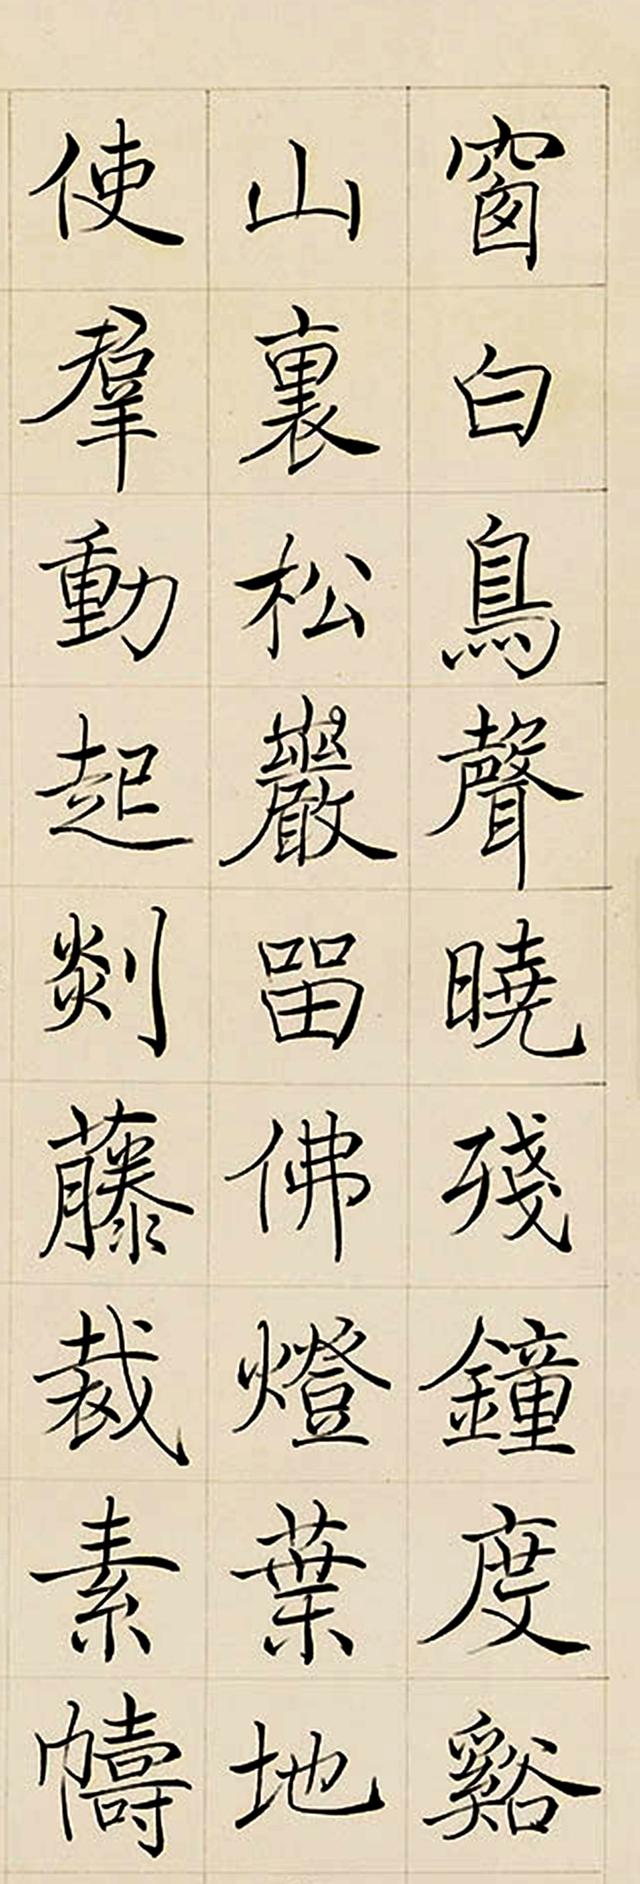 窗白鳥聲曉殘鐘度谿
山裏松巖留佛燈葉地
使羣動起剡藤裁素幬